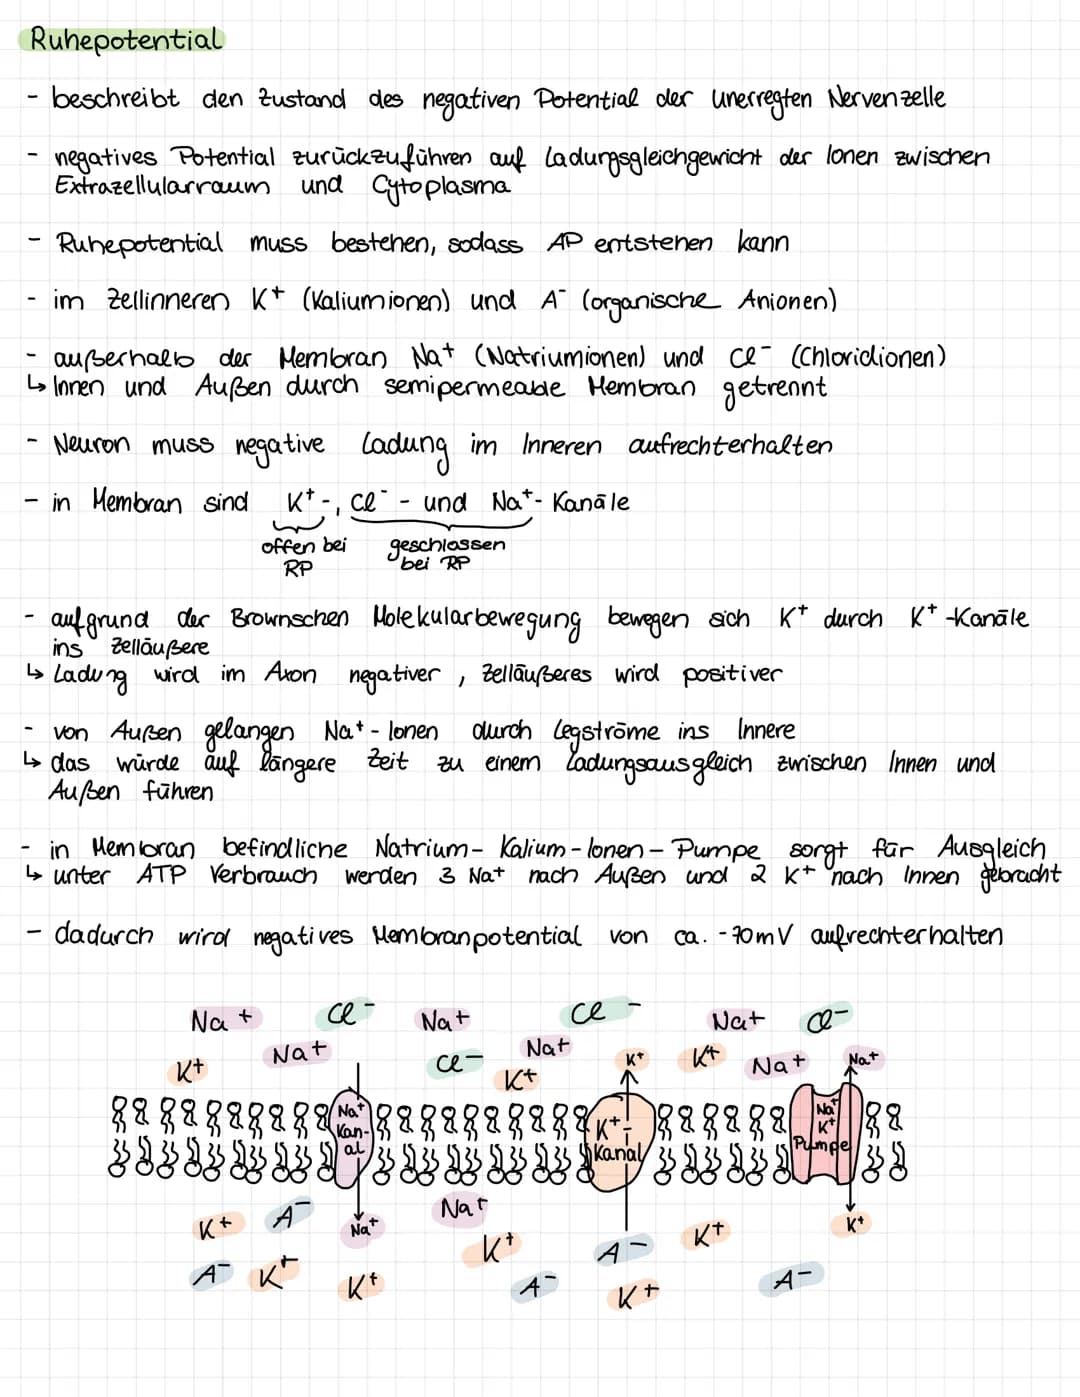 Ruhepotential
- beschreibt den Zustand des negativen Potential der unerregten Nervenzelle
- negatives Potential zurückzuführen auf Ladungsgleichgewicht der Ionen zwischen
Extrazellularraum und Cytoplasma
- Ruhepotential muss bestehen, sodass AP entstehen kann
- im Zellinneren K+ (Kaliumionen) und A- (organische Anionen)
- außerhalb der Membran Na+ (Natriumionen) und Cl- (Chloridionen)
↳ Innen und Außen durch semipermeable Membran getrennt
- Neuron muss negative Ladung im Inneren aufrechterhalten
- in Membran sind K+-, Cl- - und Na+- Kanäle
offen bei geschlossen
RP bei RP
- aufgrund der Brownschen Molekularbewegung bewegen sich K+ durch K+-Kanäle
ins Zelläußere
↳ Ladung wird im Axon negativer, Zelläußeres wird positiver
- von Außen gelangen Na+-Ionen durch Legströme ins Innere
↳ das würde auf längere Zeit zu einem Ladungsausgleich zwischen Innen und
Außen führen
- in Membran befindliche Natrium-Kalium-Ionen-Pumpe sorgt für Ausgleich
↳ unter ATP Verbrauch werden 3 Na+ nach Außen und 2 K+ nach Innen gebracht
- dadurch wird negatives Membranpotential von ca. -70mV aufrechterhalten
Na+ Cl- Na+ Cl- Na+ Cl-
K+ Na+ Cl- K+ Na+ K+ K+ Na+ Na+
Na+
Kan-
al
K+-
Kanal
Na+
K+
Pumpe
K+ A- Na+ Na+ K+ A- K+ K+
A- K+ K+ A- K+ A-